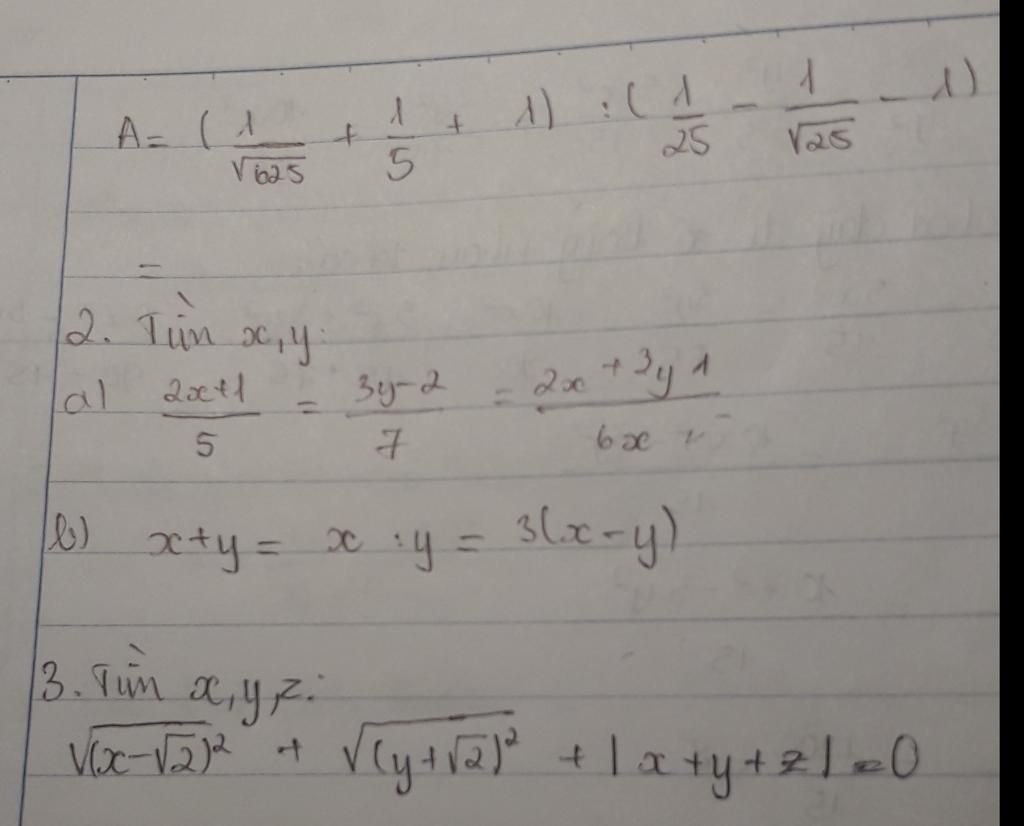 A = ( 1/√625 + 1/5 + 1) : ( 1/25 - 1/√25 - 1)
=
2. Tìm x, y:
a) (2x+1)/5 = (3y-2)/7 = (2x + 3y 1)/(6x
b) x+y = x : y = 3(x-y)
3. Tìm x, y, z:
√(x-√2)² + √(y+√2)² + |x+y+z| = 0